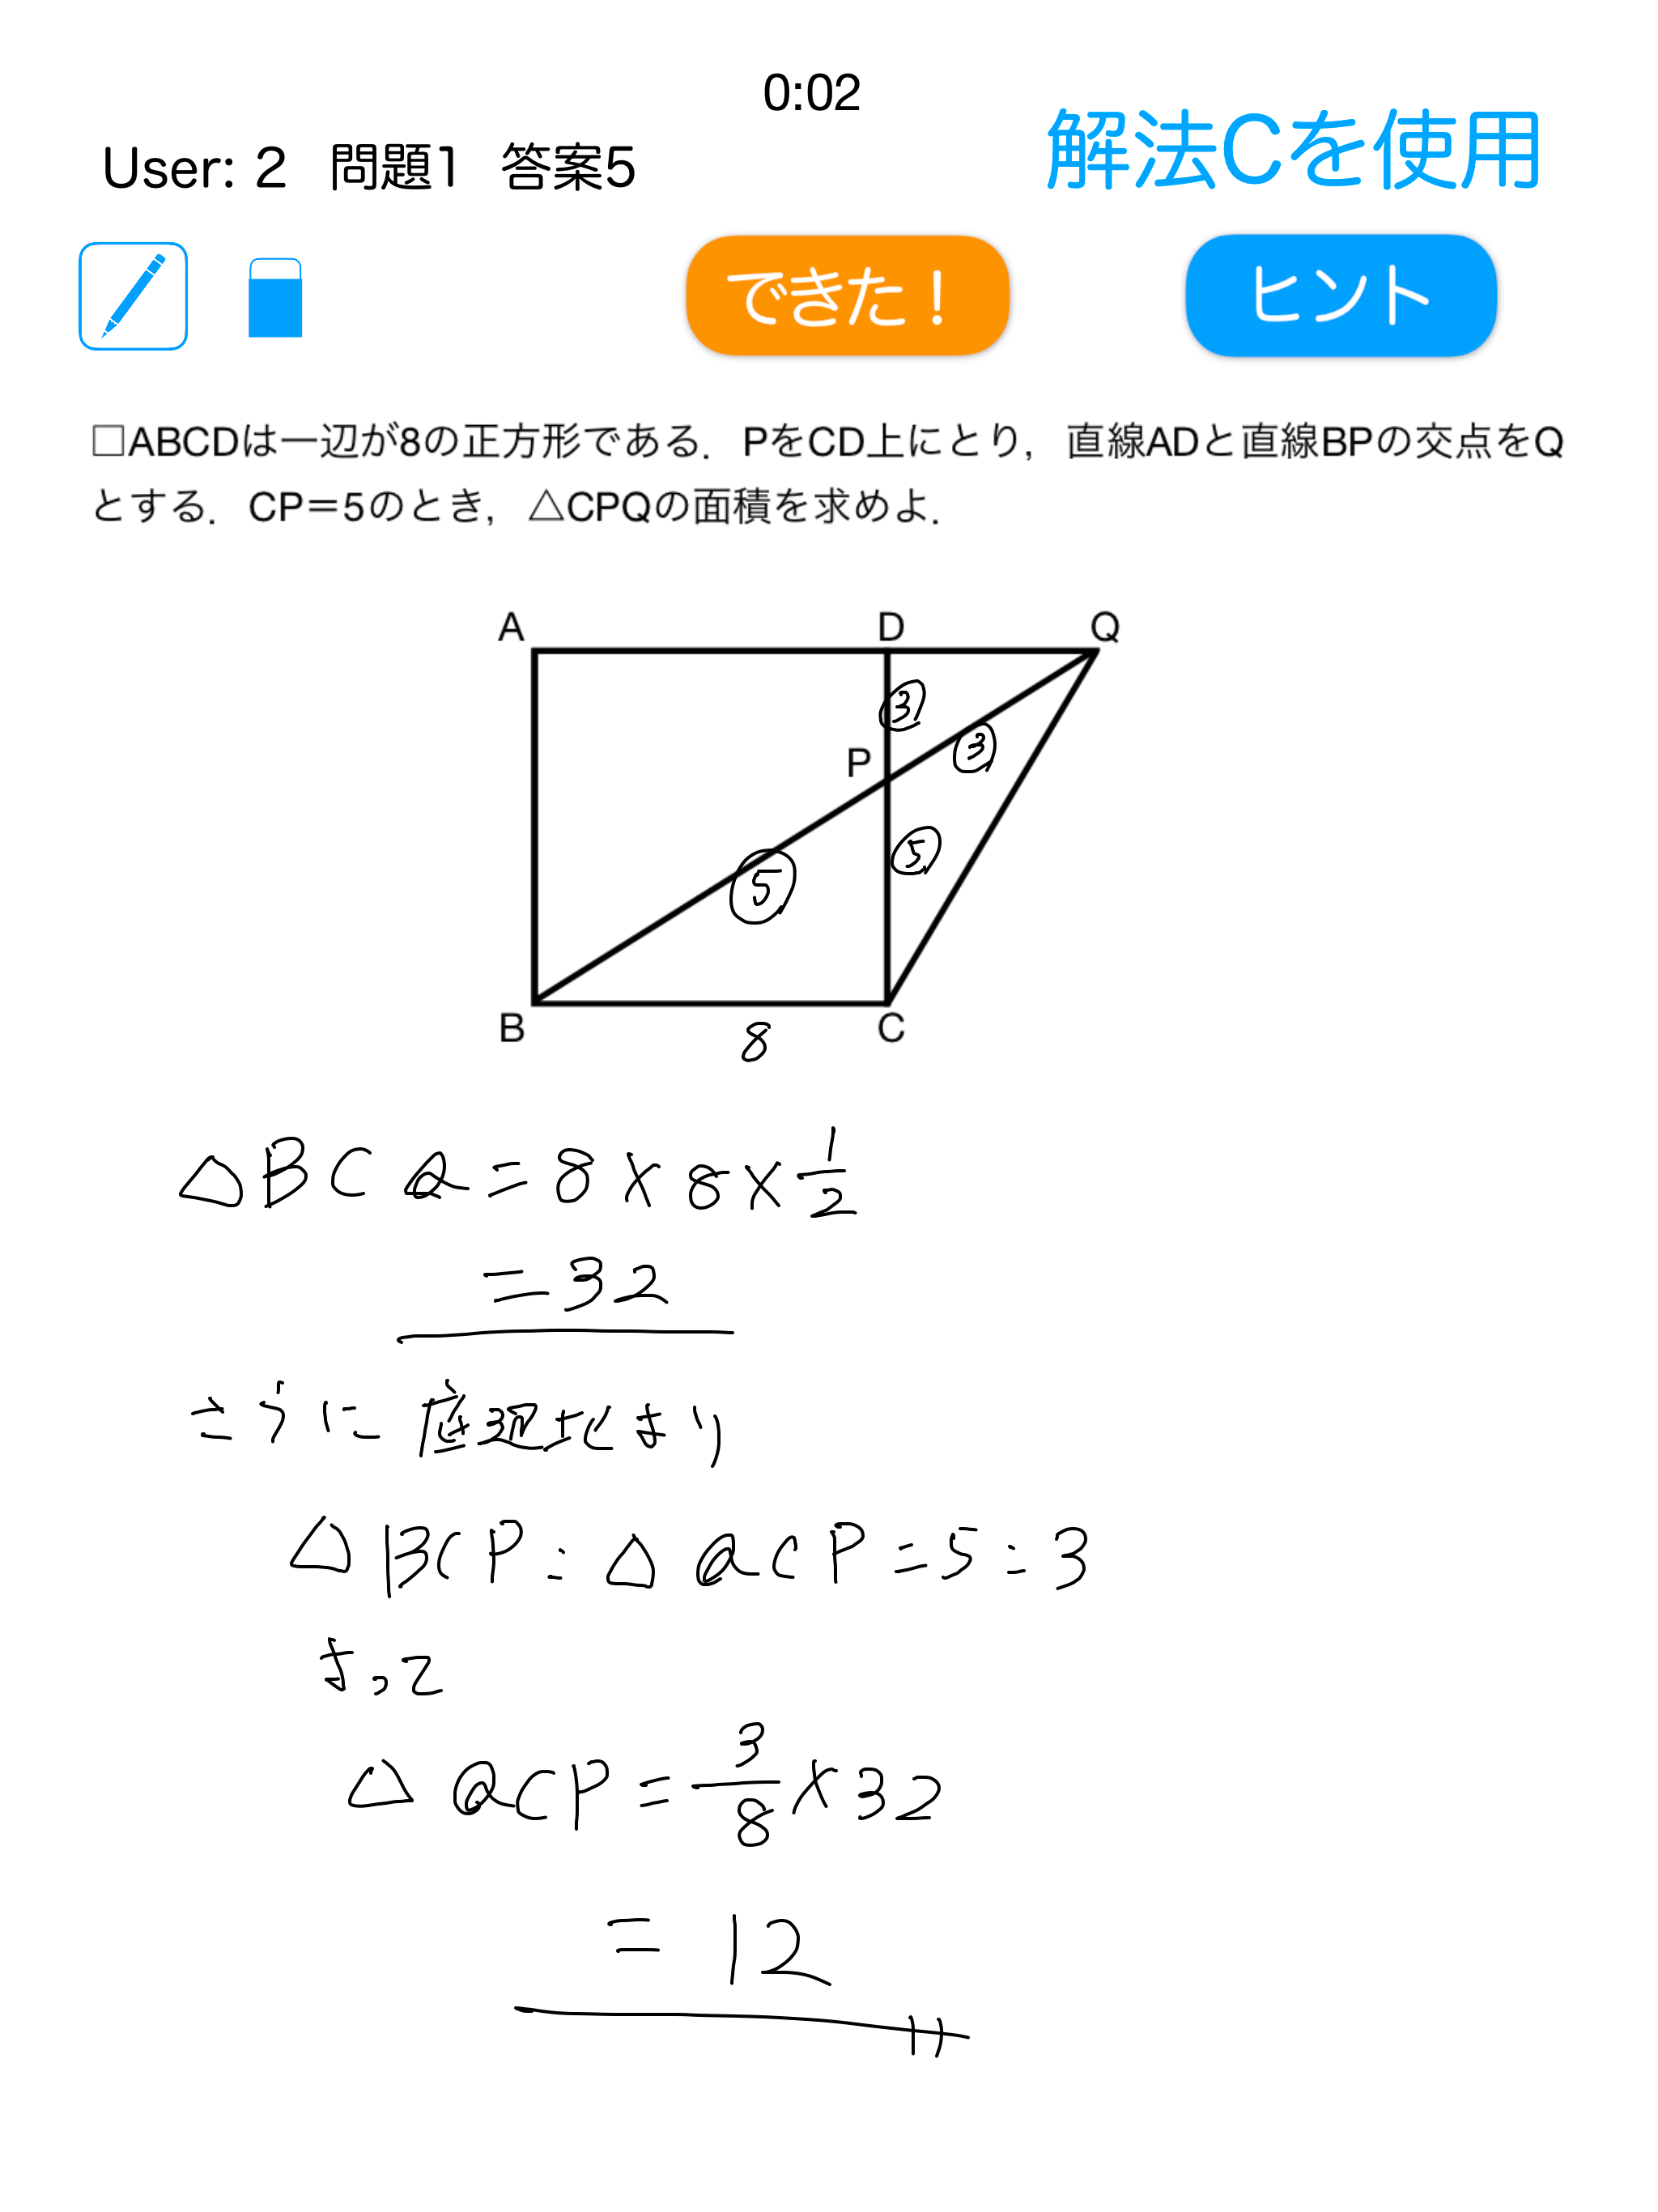 0:02
User: 2 問題1 答案5
解法Cを使用
できた！
ヒント
□ABCDは一辺が8の正方形である．PをCD上にとり，直線ADと直線BPの交点をQ
とする．CP＝5のとき，△CPQの面積を求めよ．
A D Q
③
P ③
⑤
⑤
B C
8
△BCQ=8×8×1/2
=32
さらに底辺比より
△BCP:△QCP=5:3
よって
△QCP=3/8×32
=12